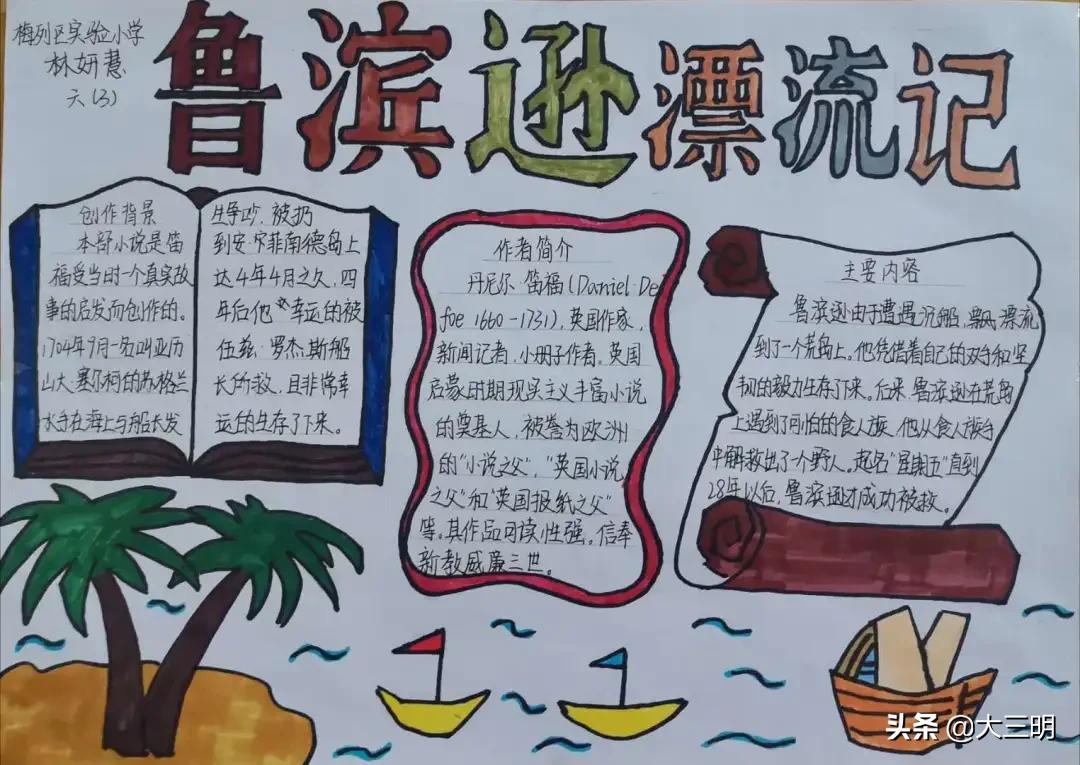 梅列区实验小学
林妍慧
六(3)
鲁滨逊漂流记
创作背景
本部小说是笛
福受当时一个真实故
事的启发而创作的。
1704年9月一名叫亚历
山大·塞尔柯的苏格兰
水手在海上与船长发
生争吵,被扔
到安·菲南德岛上
达4年4月之久,四
年后他 幸运的被
伍兹·罗杰斯船
长所救,且非常幸
运的生存了下来。
作者简介
丹尼尔·笛福(Daniel·De
foe 1660-1731),英国作家,
新闻记者,小册子作者。英国
启蒙时期现实主义丰富小说
的奠基人,被誉为欧洲
的“小说之父”,“英国小说
之父”和“英国报纸之父”
等。其作品可读性强。信奉
新教威廉三世。
主要内容
鲁滨逊由于遭遇沉船,飘漂流
到了一个荒岛上。他凭借着自己的双手和坚
韧的毅力生存了下来。后来,鲁滨逊在荒岛
上遇到了可怕的食人族,他从食人族
中解救出了一个野人。起名“星期五”直到
28年以后,鲁滨逊才成功被救。
头条 @大三明